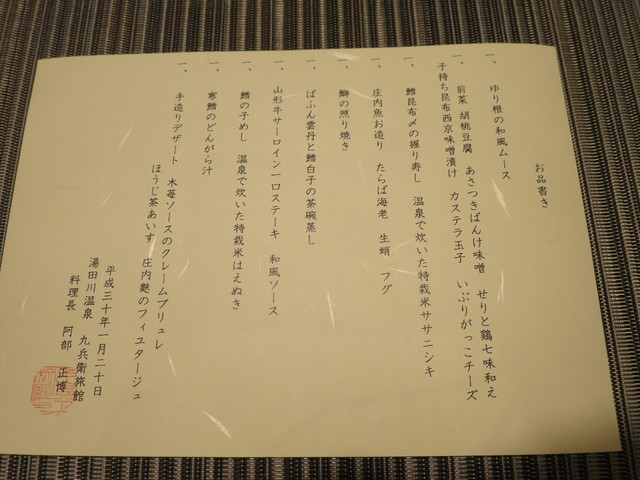 お品書き
一、ゆり根の和風ムース
一、前菜 胡桃豆腐 あさつきばんけ味噌 せりと鶏七味和え
子持ち昆布西京味噌漬け カステラ玉子 いぶりがっこチーズ
一、鱈昆布〆の握り寿し 温泉で炊いた特栽米ササニシキ
一、庄内魚お造り たらば海老 生蛸 フグ
一、鰤の照り焼き
一、ばふん雲丹と鱈白子の茶碗蒸し
一、山形牛サーロイン一口ステーキ 和風ソース
一、鱈の子めし 温泉で炊いた特栽米はえぬき
一、寒鱈のどんがら汁
一、手造りデザート 木苺ソースのクレームブリュレ
ほうじ茶あいす 庄内麩のフィユタージュ
平成三十年一月二十日
湯田川温泉 九兵衛旅館
料理長 阿部 正博